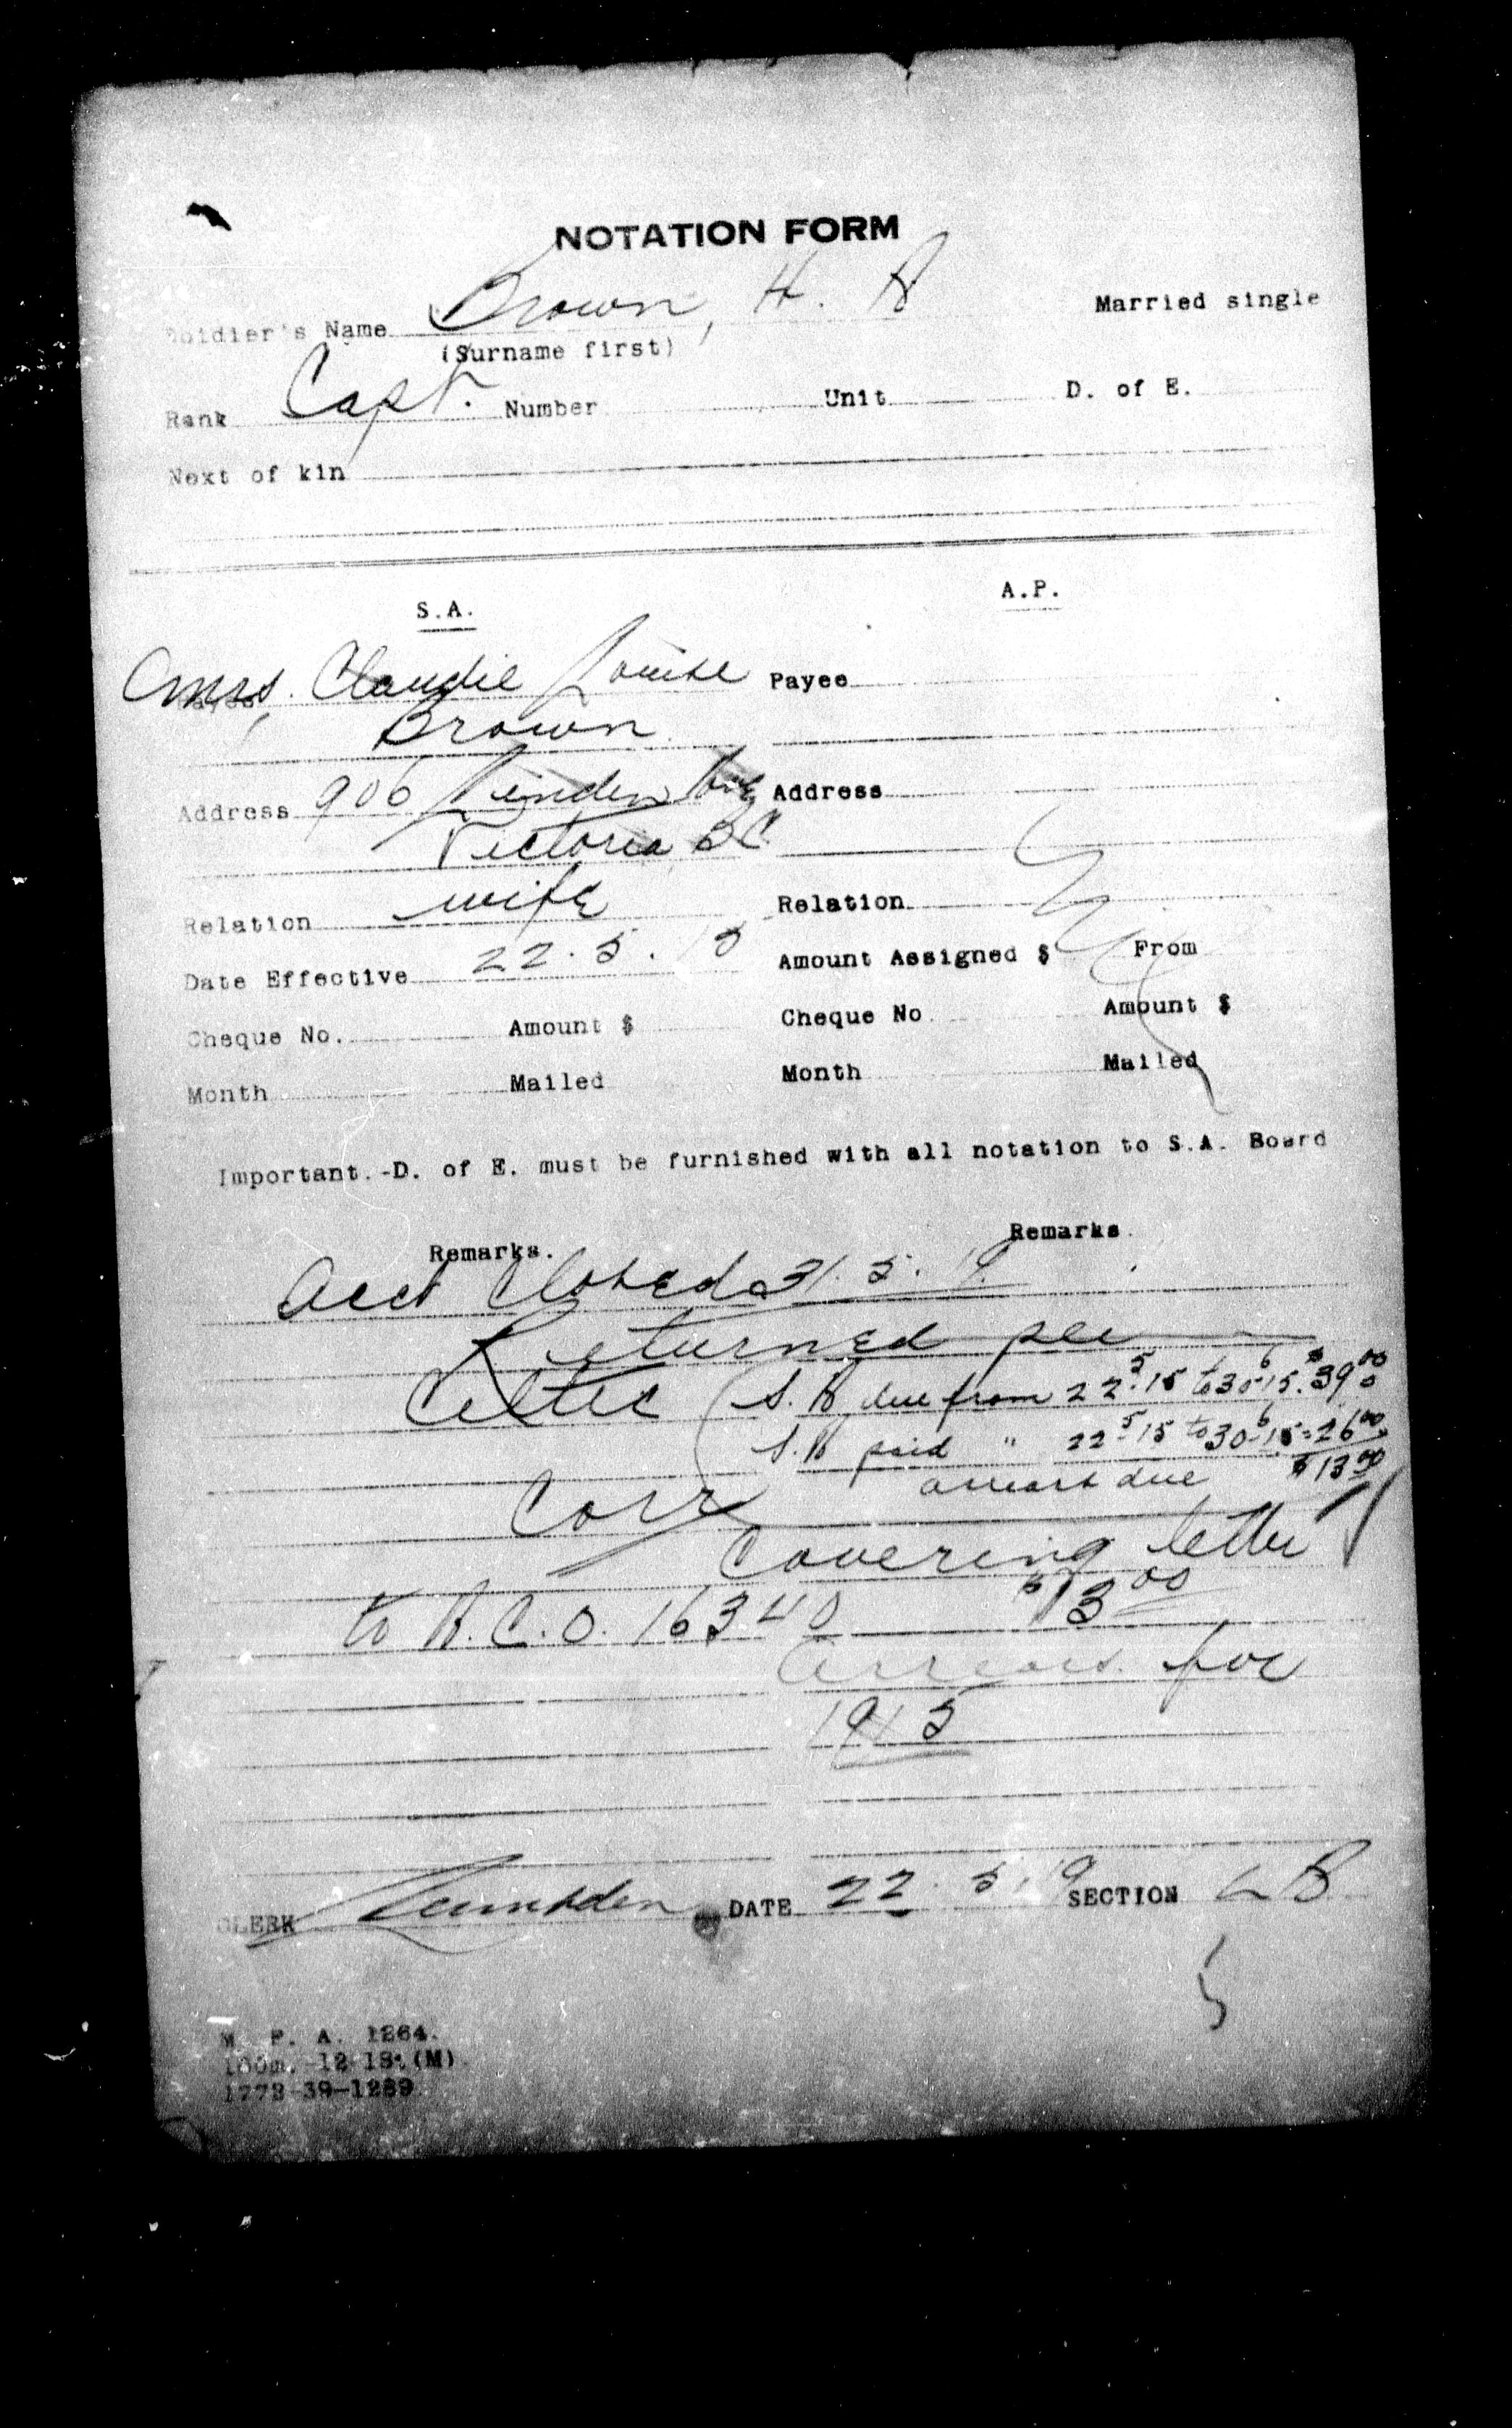 NOTATION FORM
Soldier's Name Brown, H. A Married single
(Surname first)
Rank Capt. Number Unit D. of E.
Next of kin
S.A. A.P.
Payee Mrs. Claudie Louise Payee
Brown
Address 906 Linden Ave Address
Victoria BC.
Relation wife Relation
Date Effective 22.5.15 Amount Assigned $ From
Cheque No. Amount $ Cheque No Amount $
Month Mailed Month Mailed
Important.-D. of E. must be furnished with all notation to S.A. Board
Remarks. Remarks.
Acct Closed 31.5.19.
Returned per
Celtic (S.A due from 22.5.15 to 30.6.15. $39.00
S.A paid " 22.5.15 to 30.6.15 = 26.00
arrears due $13.00
Corr
Covering letter
to A.C.O. 16340 $13.00
arrears for
1915
CLERK Lumsden DATE 22.5.19 SECTION LB
5
M. F. A. 1264.
100m.-12-18.(M)
1772-39-1289